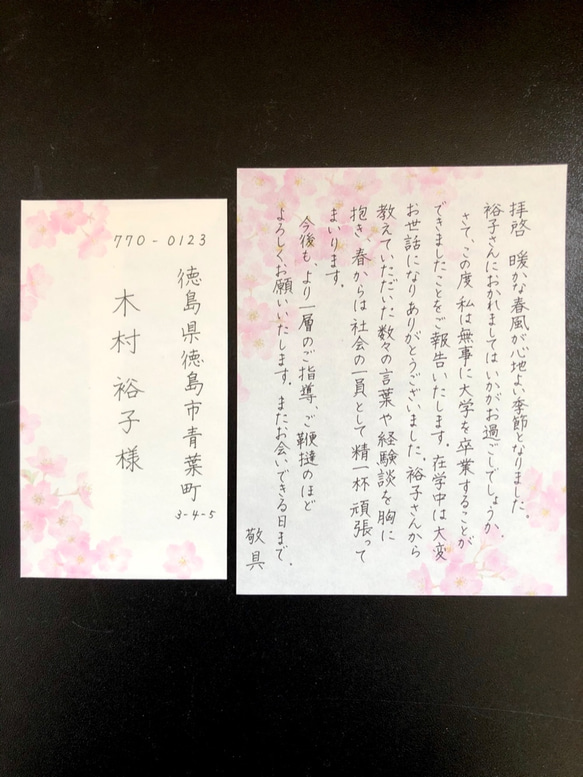 770-0123
徳島県徳島市青葉町
3-4-5
木村裕子様
拝啓 暖かな春風が心地よい季節となりました。
裕子さんにおかれましてはいかがお過ごしでしょうか。
さて、この度 私は無事に大学を卒業することが
できましたことをご報告いたします。在学中は大変
お世話になりありがとうございました。裕子さんから
教えていただいた数々の言葉や経験談を胸に
抱き、春からは社会の一員として精一杯頑張って
まいります。
今後も、より一層のご指導、ご鞭撻のほど
よろしくお願いいたします。またお会いできる日まで。
敬具